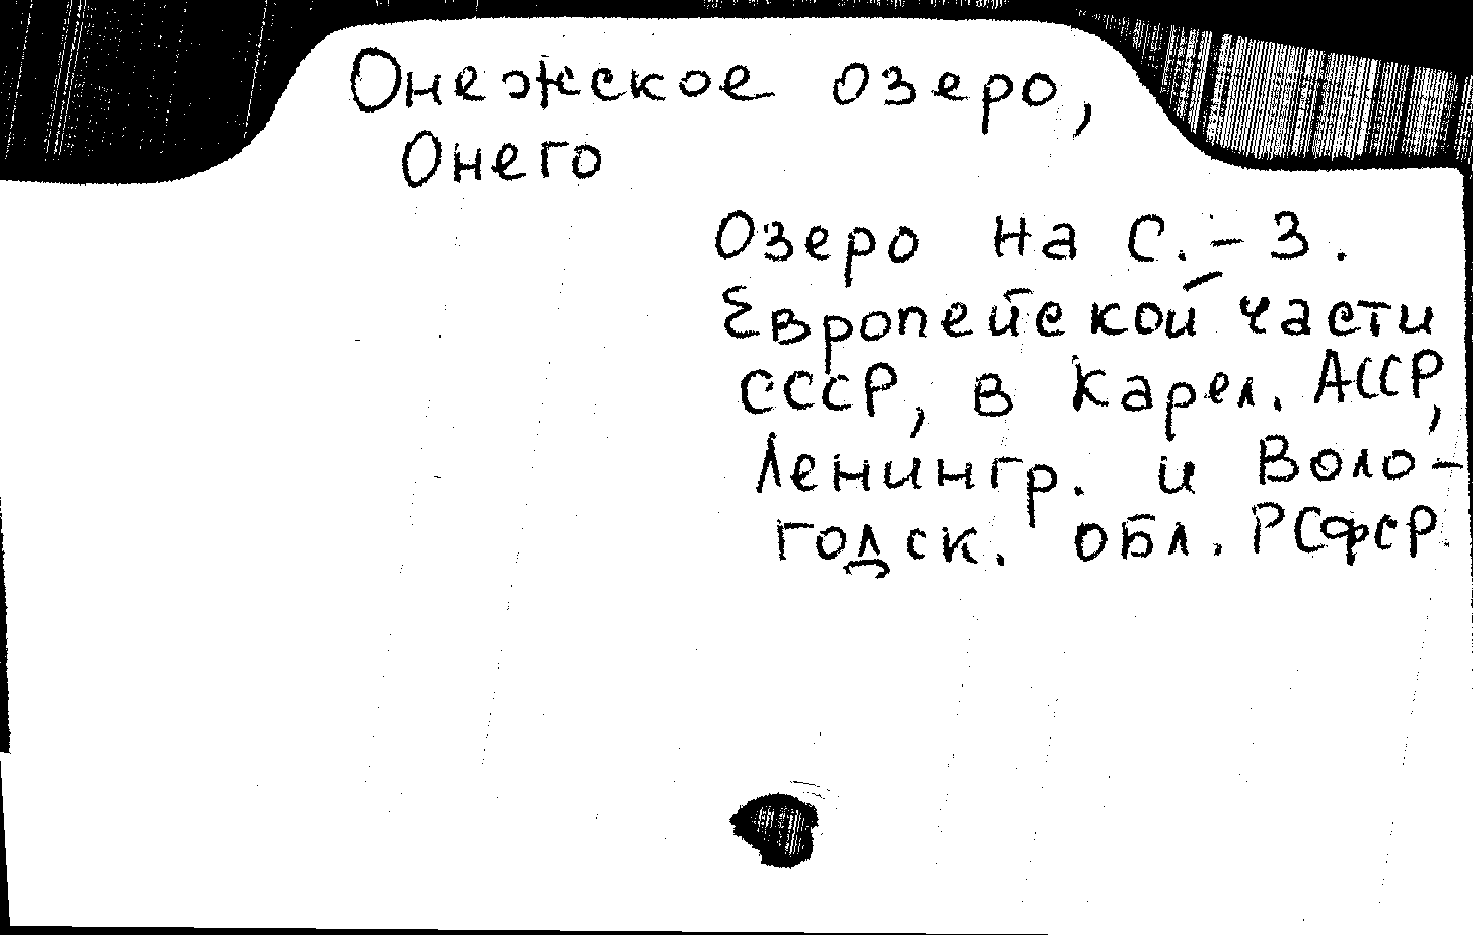 Онежское озеро,
Онего
Озеро на С.-З.
Европейской части
СССР, в Карел. АССР,
Ленингр. и Воло-
годск. обл. РСФСР.